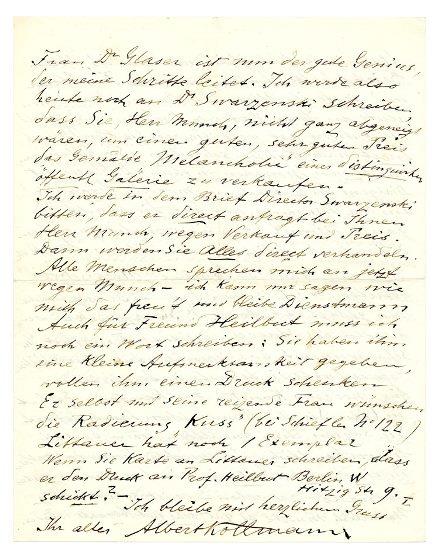 Frau Dr Glaser ist nun der gute Genius,
der meine Schritte leitet. Ich werde also
heute noch an Dr Swarzenski schreiben
dass Sie, Herr Munch, nicht ganz abgeneigt
wären, um einen guten, sehr guten Preis
das Gemälde "Melancholie" einer distinguirten
öffentl Galerie zu verkaufen.
Ich werde in dem Brief Director Swarzenski
bitten, dass er direct anfragt bei Ihnen
Herr Munch, wegen Verkauf und Preis.
Dann werden Sie Alles direct verhandeln.
Alle Menschen sprechen mich an jetzt
wegen Munch – ich kann nur sagen wie
mich das freut und bleibe Dienstmann
Auch für Freund Heilbut muss ich
noch ein Wort schreiben: Sie haben ihm
eine kleine Aufmerksamkeit gegeben,
wollen ihm einen Druck schenken
Er selbst und seine reizende Frau wünschen
die Radierung "Kuss" (bei Schiefler No 122)
Littauer hat noch 1 Exemplar
Wenn Sie Karte an Littauer schreiben, dass
er den Druck an Prof. Heilbut Berlin W
Hitzig Str 9. I.
schickt? –
Ich bleibe mit herzlichem Gruss
Ihr alter Albert Kollmann